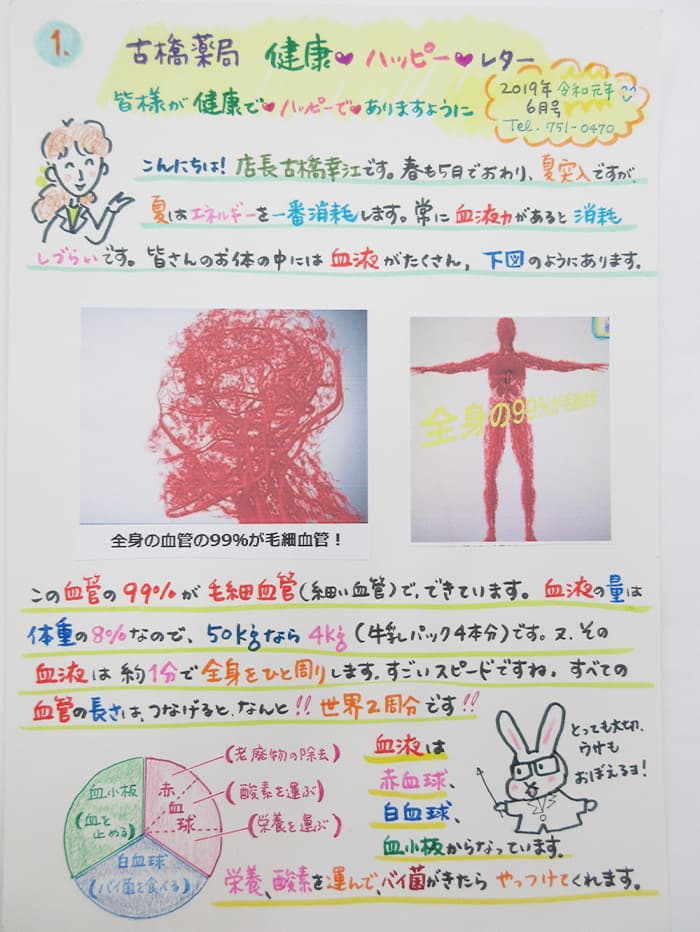 1.
古橋薬局 健康♥ハッピー♥レター
皆様が健康で♥ハッピーで♥ありますように
2019年 令和元年
6月号
Tel. 751-0470
こんにちは! 店長古橋幸江です。春も5月でおわり、夏突入ですが、
夏はエネルギーを一番消耗します。常に血液力があると消耗
しづらいです。皆さんのお体の中には血液がたくさん, 下図のようにあります。
全身の血管の99%が毛細血管!
全身の99%が毛細血管
この血管の99%が毛細血管(細い血管)で、できています。血液の量は
体重の8%なので、50kgなら4kg(牛乳パック4本分)です。又、その
血液は約1分で全身をひと周りします。すごいスピードですね。すべての
血管の長さは、つなげると、なんと!!世界2周分です!!
血小板
(血を止める)
赤血球
(老廃物の除去)
(酸素を運ぶ)
(栄養を運ぶ)
白血球
(バイ菌を食べる)
血液は
赤血球、
白血球、
血小板からなっています。
とっても大切、
うさも
おぼえるヨ!
栄養、酸素を運んで、バイ菌がきたらやっつけてくれます。